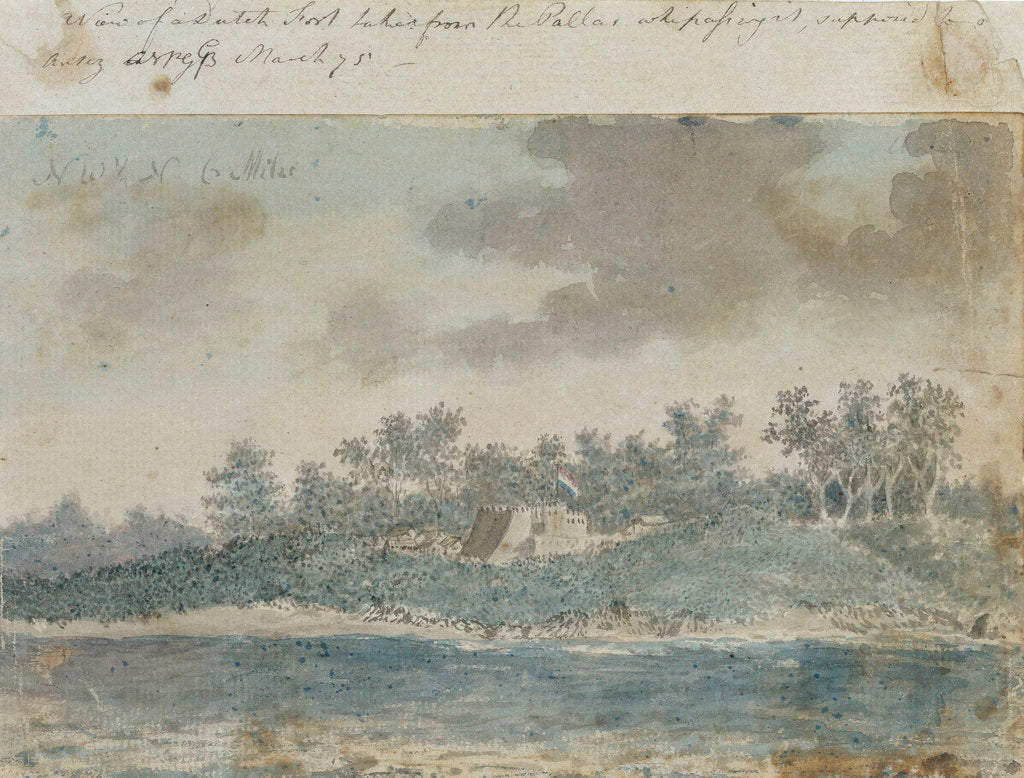 View of a Dutch Fort taken from the Pallas when passing it, supposed to
March 75 —
N W & N 6 Miles